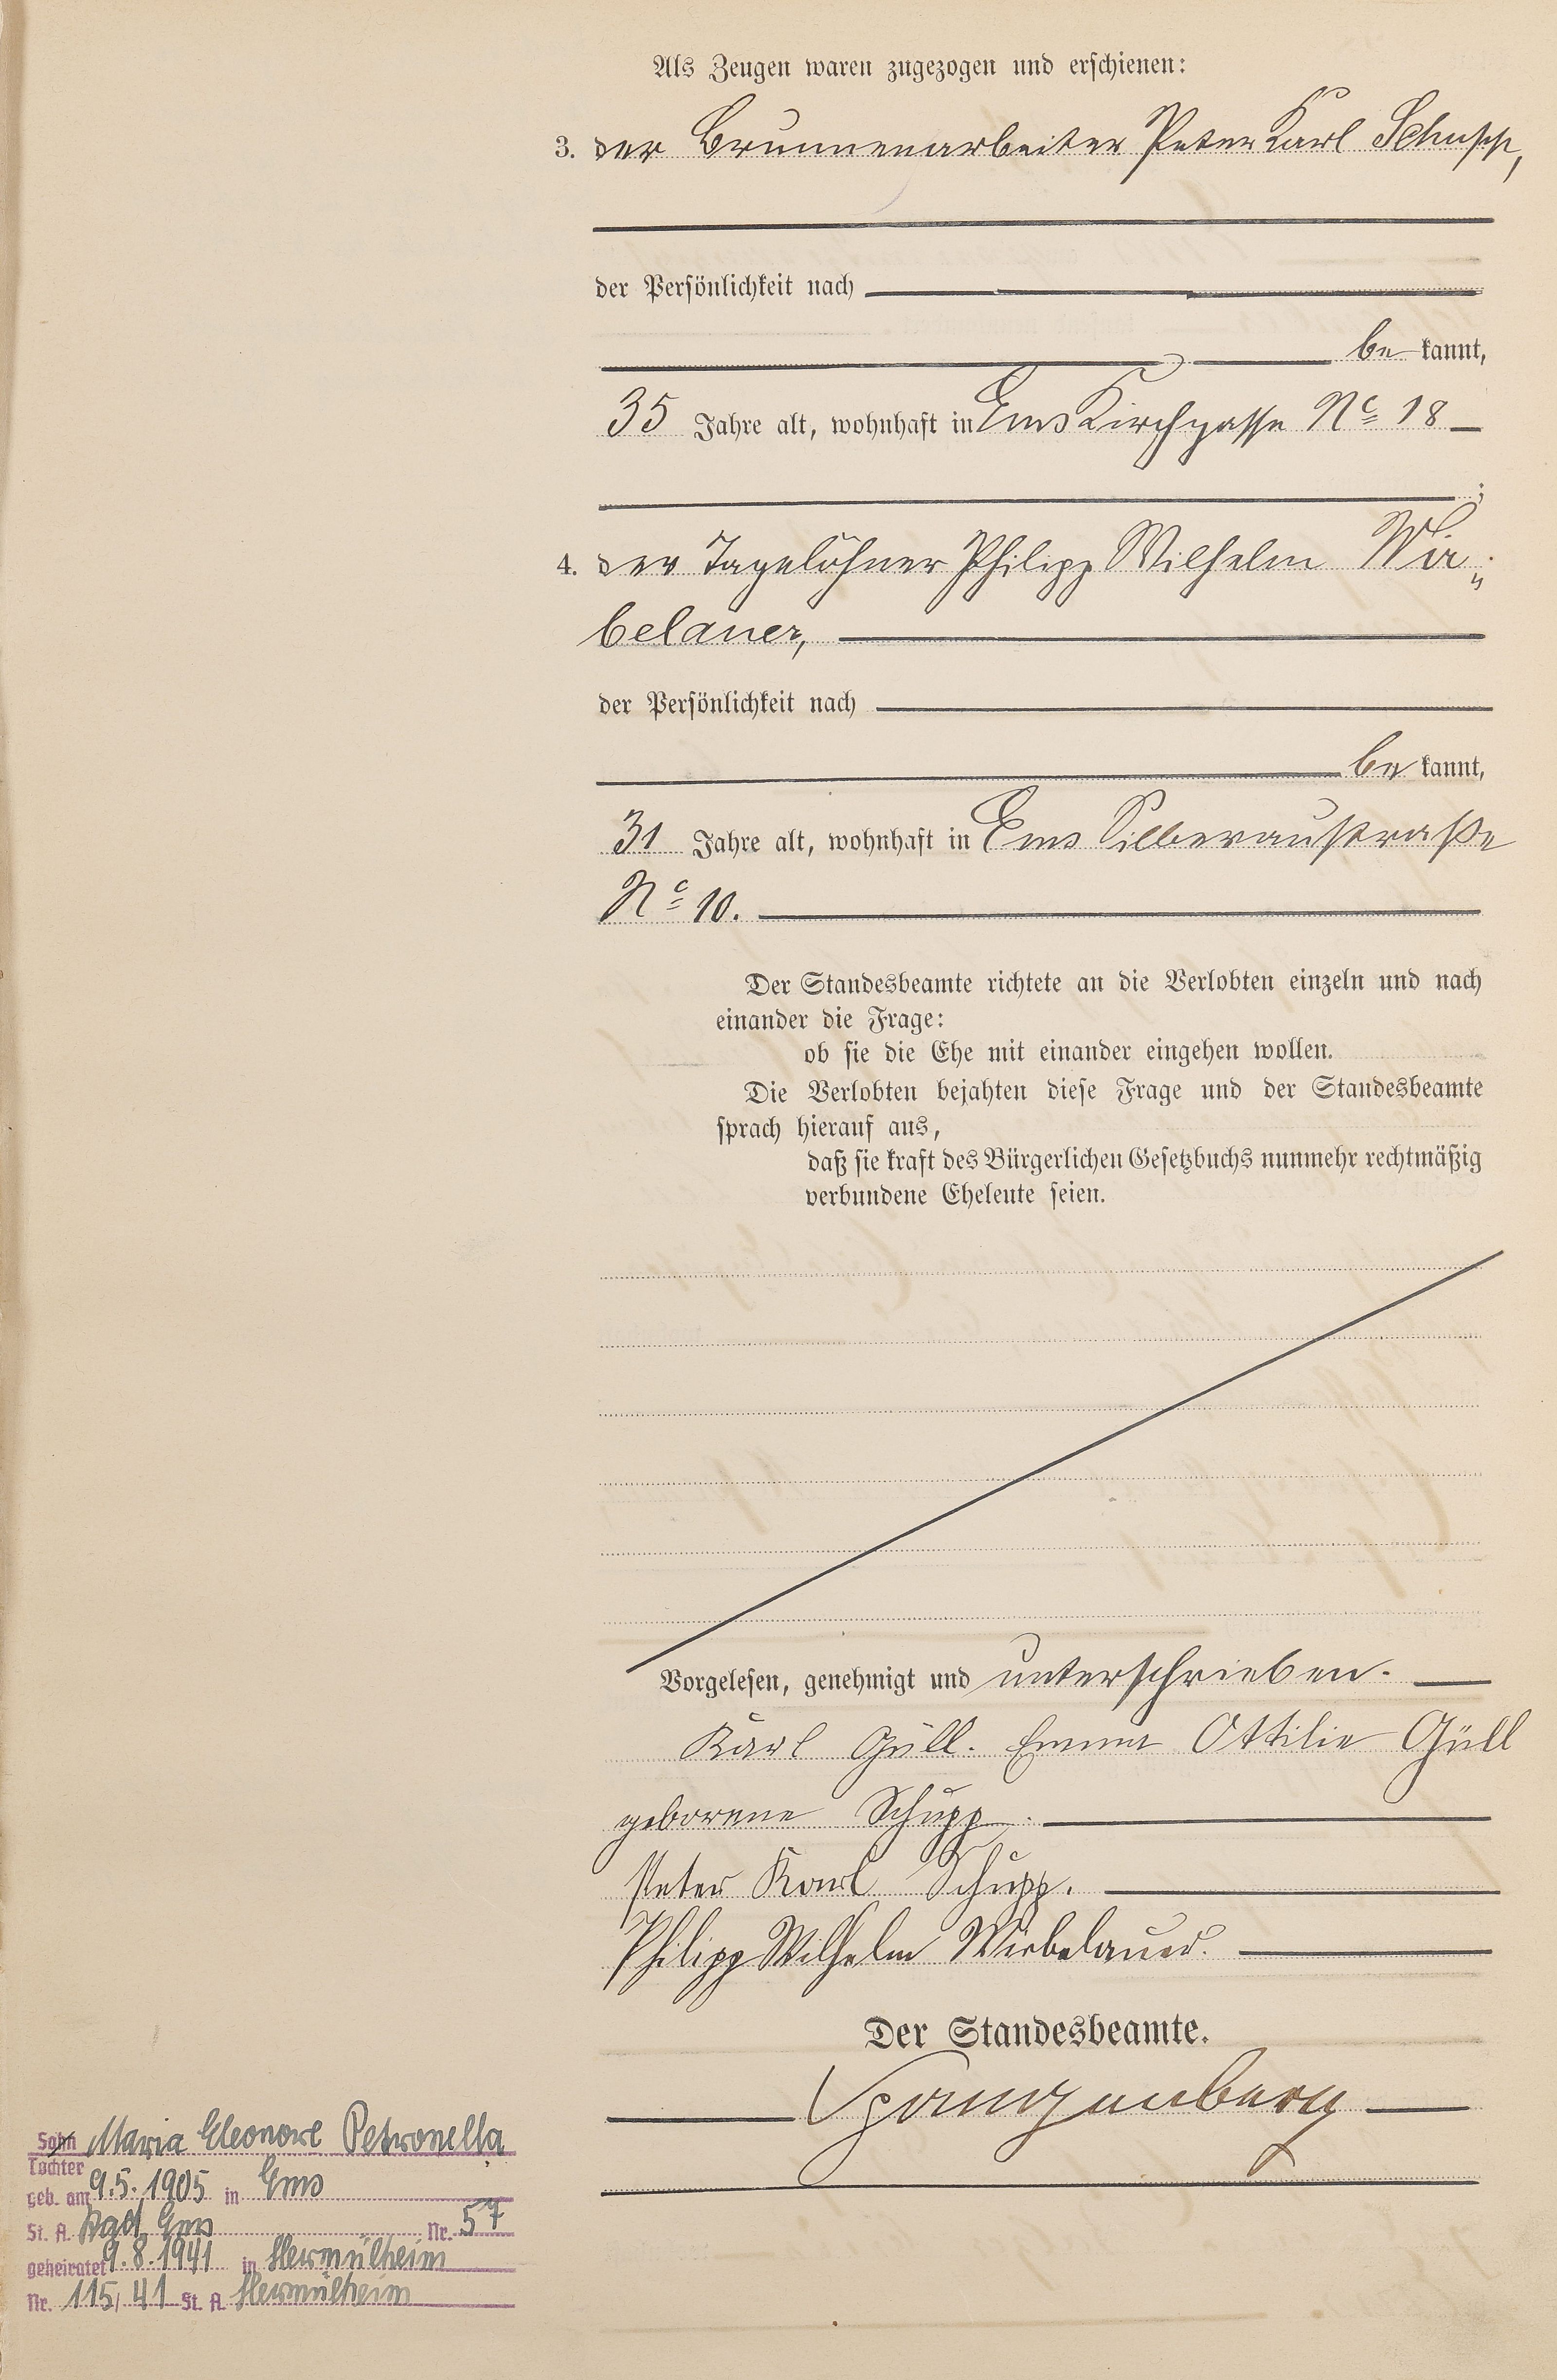 Als Zeugen waren zugezogen und erschienen:
3. der Brunnenarbeiter Peter Karl Schupp,
der Persönlichkeit nach
be kannt,
35 Jahre alt, wohnhaft in Ems Kirchgasse No 18
;
4. der Tagelöhner Philipp Wilhelm Wir„
belauer,
der Persönlichkeit nach
be kannt,
31 Jahre alt, wohnhaft in Ems Silberaustraße
No 10.
Der Standesbeamte richtete an die Verlobten einzeln und nach
einander die Frage:
ob sie die Ehe mit einander eingehen wollen.
Die Verlobten bejahten diese Frage und der Standesbeamte
sprach hierauf aus,
daß sie kraft des Bürgerlichen Gesetzbuchs nunmehr rechtmäßig
verbundene Eheleute seien.
Vorgelesen, genehmigt und unterschrieben.
Karl Güll. Emma Ottilie Güll
geborene Schupp.
Peter Karl Schupp.
Philipp Wilhelm Wirbelauer.
Der Standesbeamte.
Spangenberg
Sohn Maria Eleonore Petronella
Tochter
geb. am 9.5.1905 in Ems
St. A. Bad Ems Nr. 57
geheiratet 9.8.1941 in Hermülheim
Nr. 115/41 St. A. Hermülheim